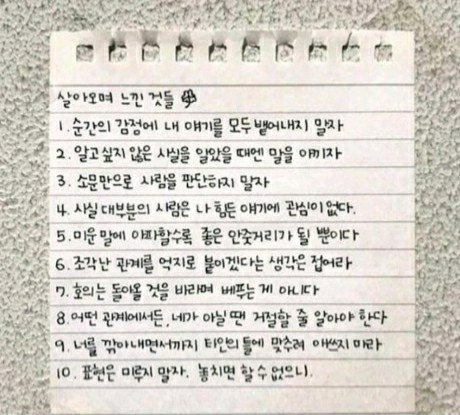 살아오며 느낀 것들
1. 순간의 감정에 내 얘기를 모두 뱉어내지 말자
2. 알고싶지 않은 사실을 알았을 때엔 말을 아끼자
3. 소문만으로 사람을 판단하지 말자
4. 사실 대부분의 사람은 나 힘든 얘기에 관심이 없다.
5. 미운 말에 아파할수록 좋은 안줏거리가 될 뿐이다
6. 조각난 관계를 억지로 붙이겠다는 생각은 접어라
7. 호의는 돌아올 것을 바라며 베푸는 게 아니다
8. 어떤 관계에서든, 네가 아닐 땐 거절할 줄 알아야 한다
9. 너를 깎아내면서까지 타인의 틀에 맞추려 애쓰지 마라
10. 표현은 미루지 말자. 놓치면 할 수 없으니.